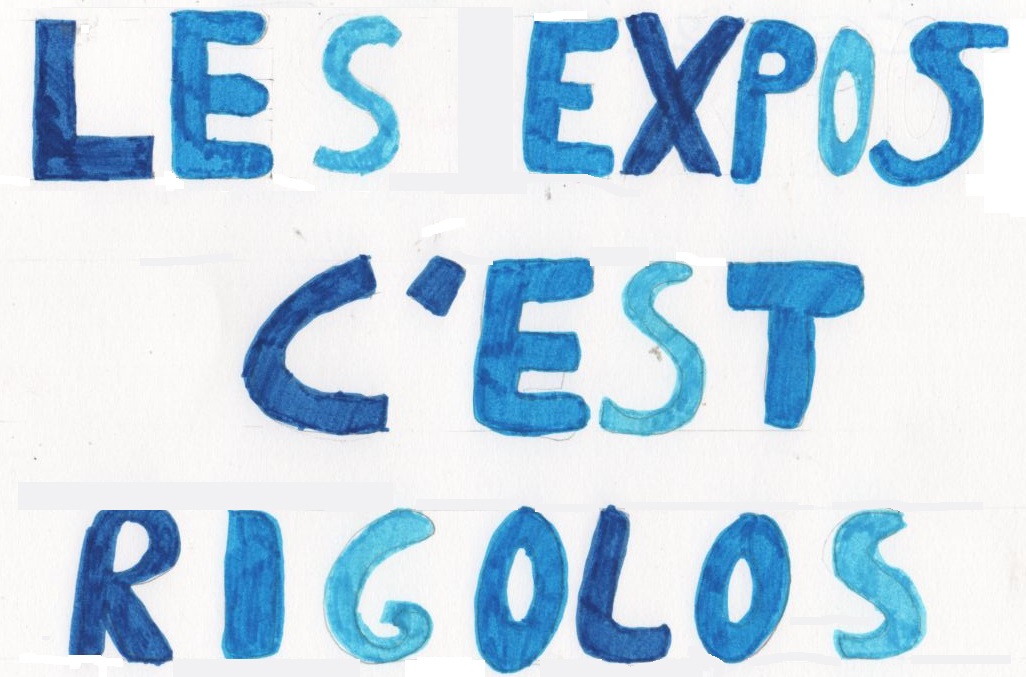 LES EXPOS
C'EST
RIGOLOS